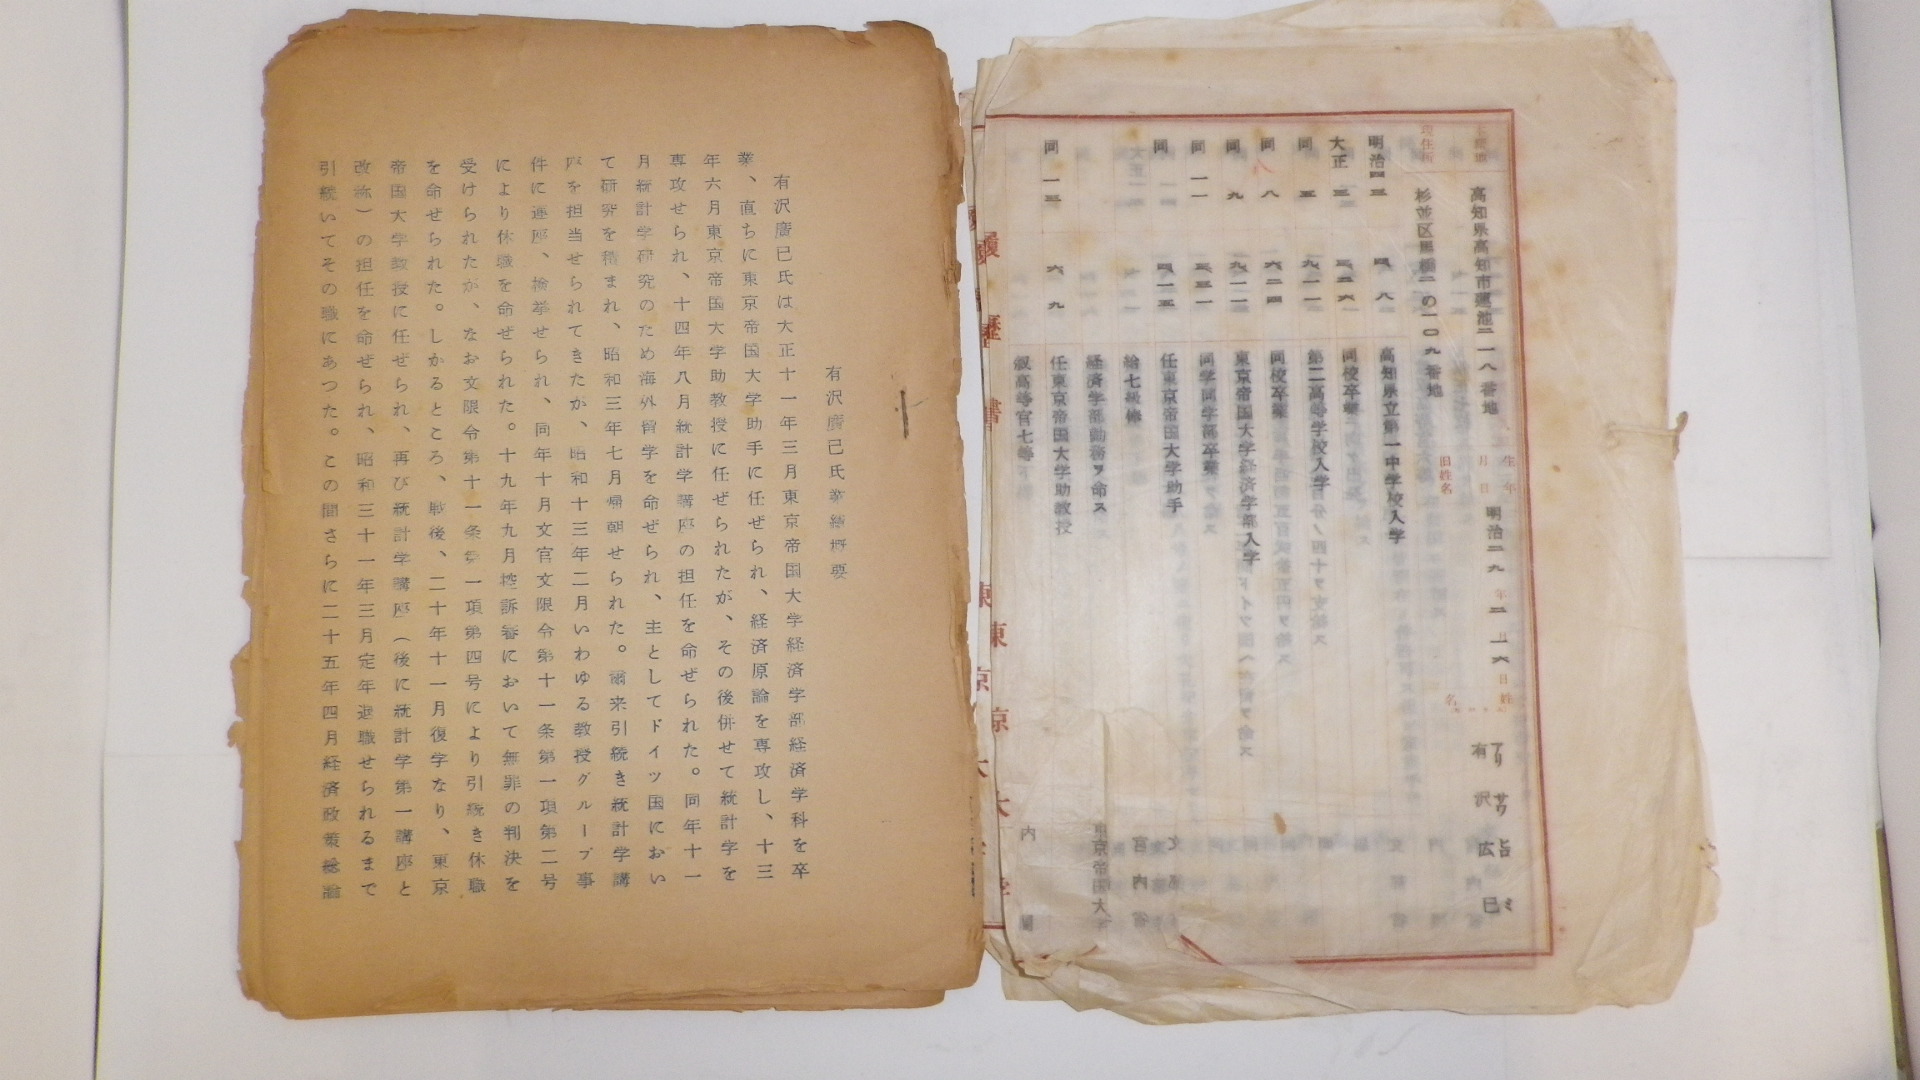 高知県高知市蓮池二一八番地 生年月日 明治二九年二月一六日
アリサワ ヒロミ
有沢広巳
現住所 杉並区 二の一〇九番地 旧姓名
明治四三 四 八 高知県立第一中学校入学
大正三 同校卒業
同五 九一一 第二高等学校入学
同八 六二四 同校卒業
同九 九一一 東京帝国大学経済学部入学
同一一 三三一 同学同学部卒業
同 四一五 任東京帝国大学助手
給七級俸 宮内省
経済学部勤務ヲ命ス 東京帝国大
同一三 六 九 任東京帝国大学助教授 内閣
叙高等官七等
履歴書 東京大学
有沢廣巳氏業績概要
有沢廣巳氏は大正十一年三月東京帝国大学経済学部経済学科を卒
業、直ちに東京帝国大学助手に任ぜられ、経済原論を専攻し、十三
年六月東京帝国大学助教授に任ぜられたが、その後併せて統計学を
専攻せられ、十四年八月統計学講座の担任を命ぜられた。同年十一
月統計学研究のため海外留学を命ぜられ、主としてドイツ国におい
て研究を積まれ、昭和三年七月帰朝せられた。爾来引続き統計学講
座を担当せられてきたが、昭和十三年二月いわゆる教授グループ事
件に連座、検挙せられ、同年十月文官文限令第十一条第一項第二号
により休職を命ぜられた。十九年九月控訴審において無罪の判決を
受けられたが、なお文限令第十一条第一項第四号により引続き休職
を命ぜられた。しかるところ、戦後、二十年十一月復学なり、東京
帝国大学教授に任ぜられ、再び統計学講座（後に統計学第一講座と
改称）の担任を命ぜられ、昭和三十一年三月定年退職せられるまで
引続いてその職にあつた。この間さらに二十五年四月経済政策総論